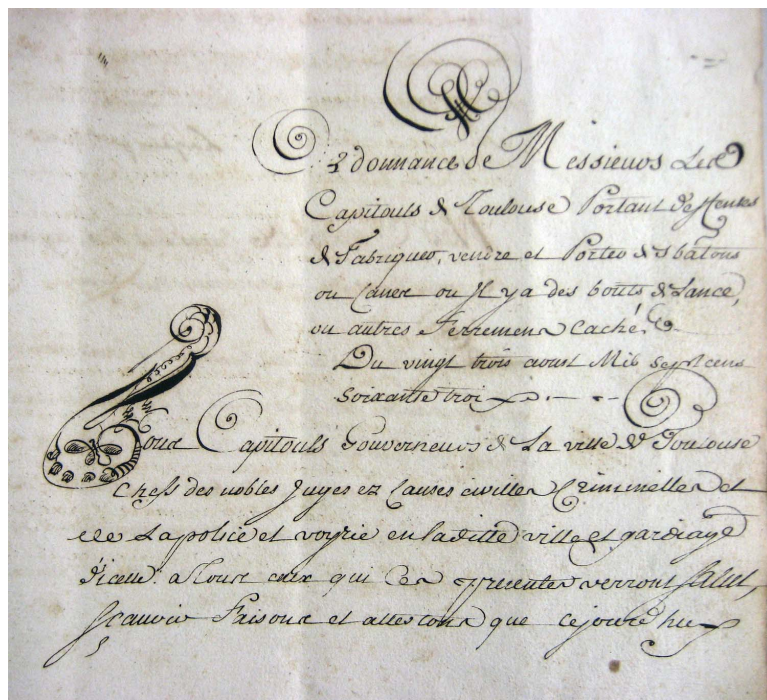 Ordonnance de Messieurs Les
Capitouls de Toulouse Portant deffenses
de Fabriquer, vendre et Porter des batons
ou Canes ou Il y a des bouts de Lance,
ou autres Ferremens Cachés
Du vingt trois aoust Mil sept cens
soixante trois
Nous Capitouls Gouverneurs de La ville de Toulouse
chefs des nobles Juges ez Causes civilles Criminelles et
de La police et voyrie en laditte ville et gardiage
d'icelle. a Tous ceux qui Ces presentes verront Salut,
Scavoir Faisons et attestons que cejourd'huy